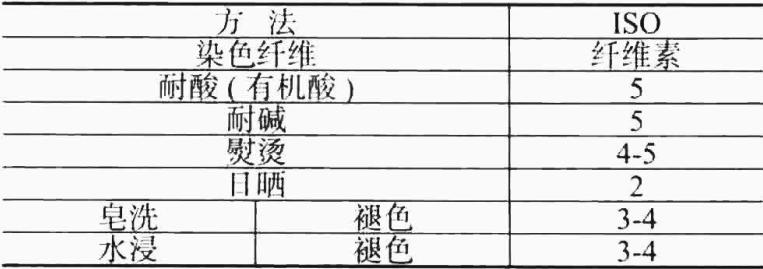 方 法 ISO
染色纤维 纤维素
耐酸(有机酸) 5
耐碱 5
熨烫 4-5
日晒 2
皂洗 褪色 3-4
水浸 褪色 3-4